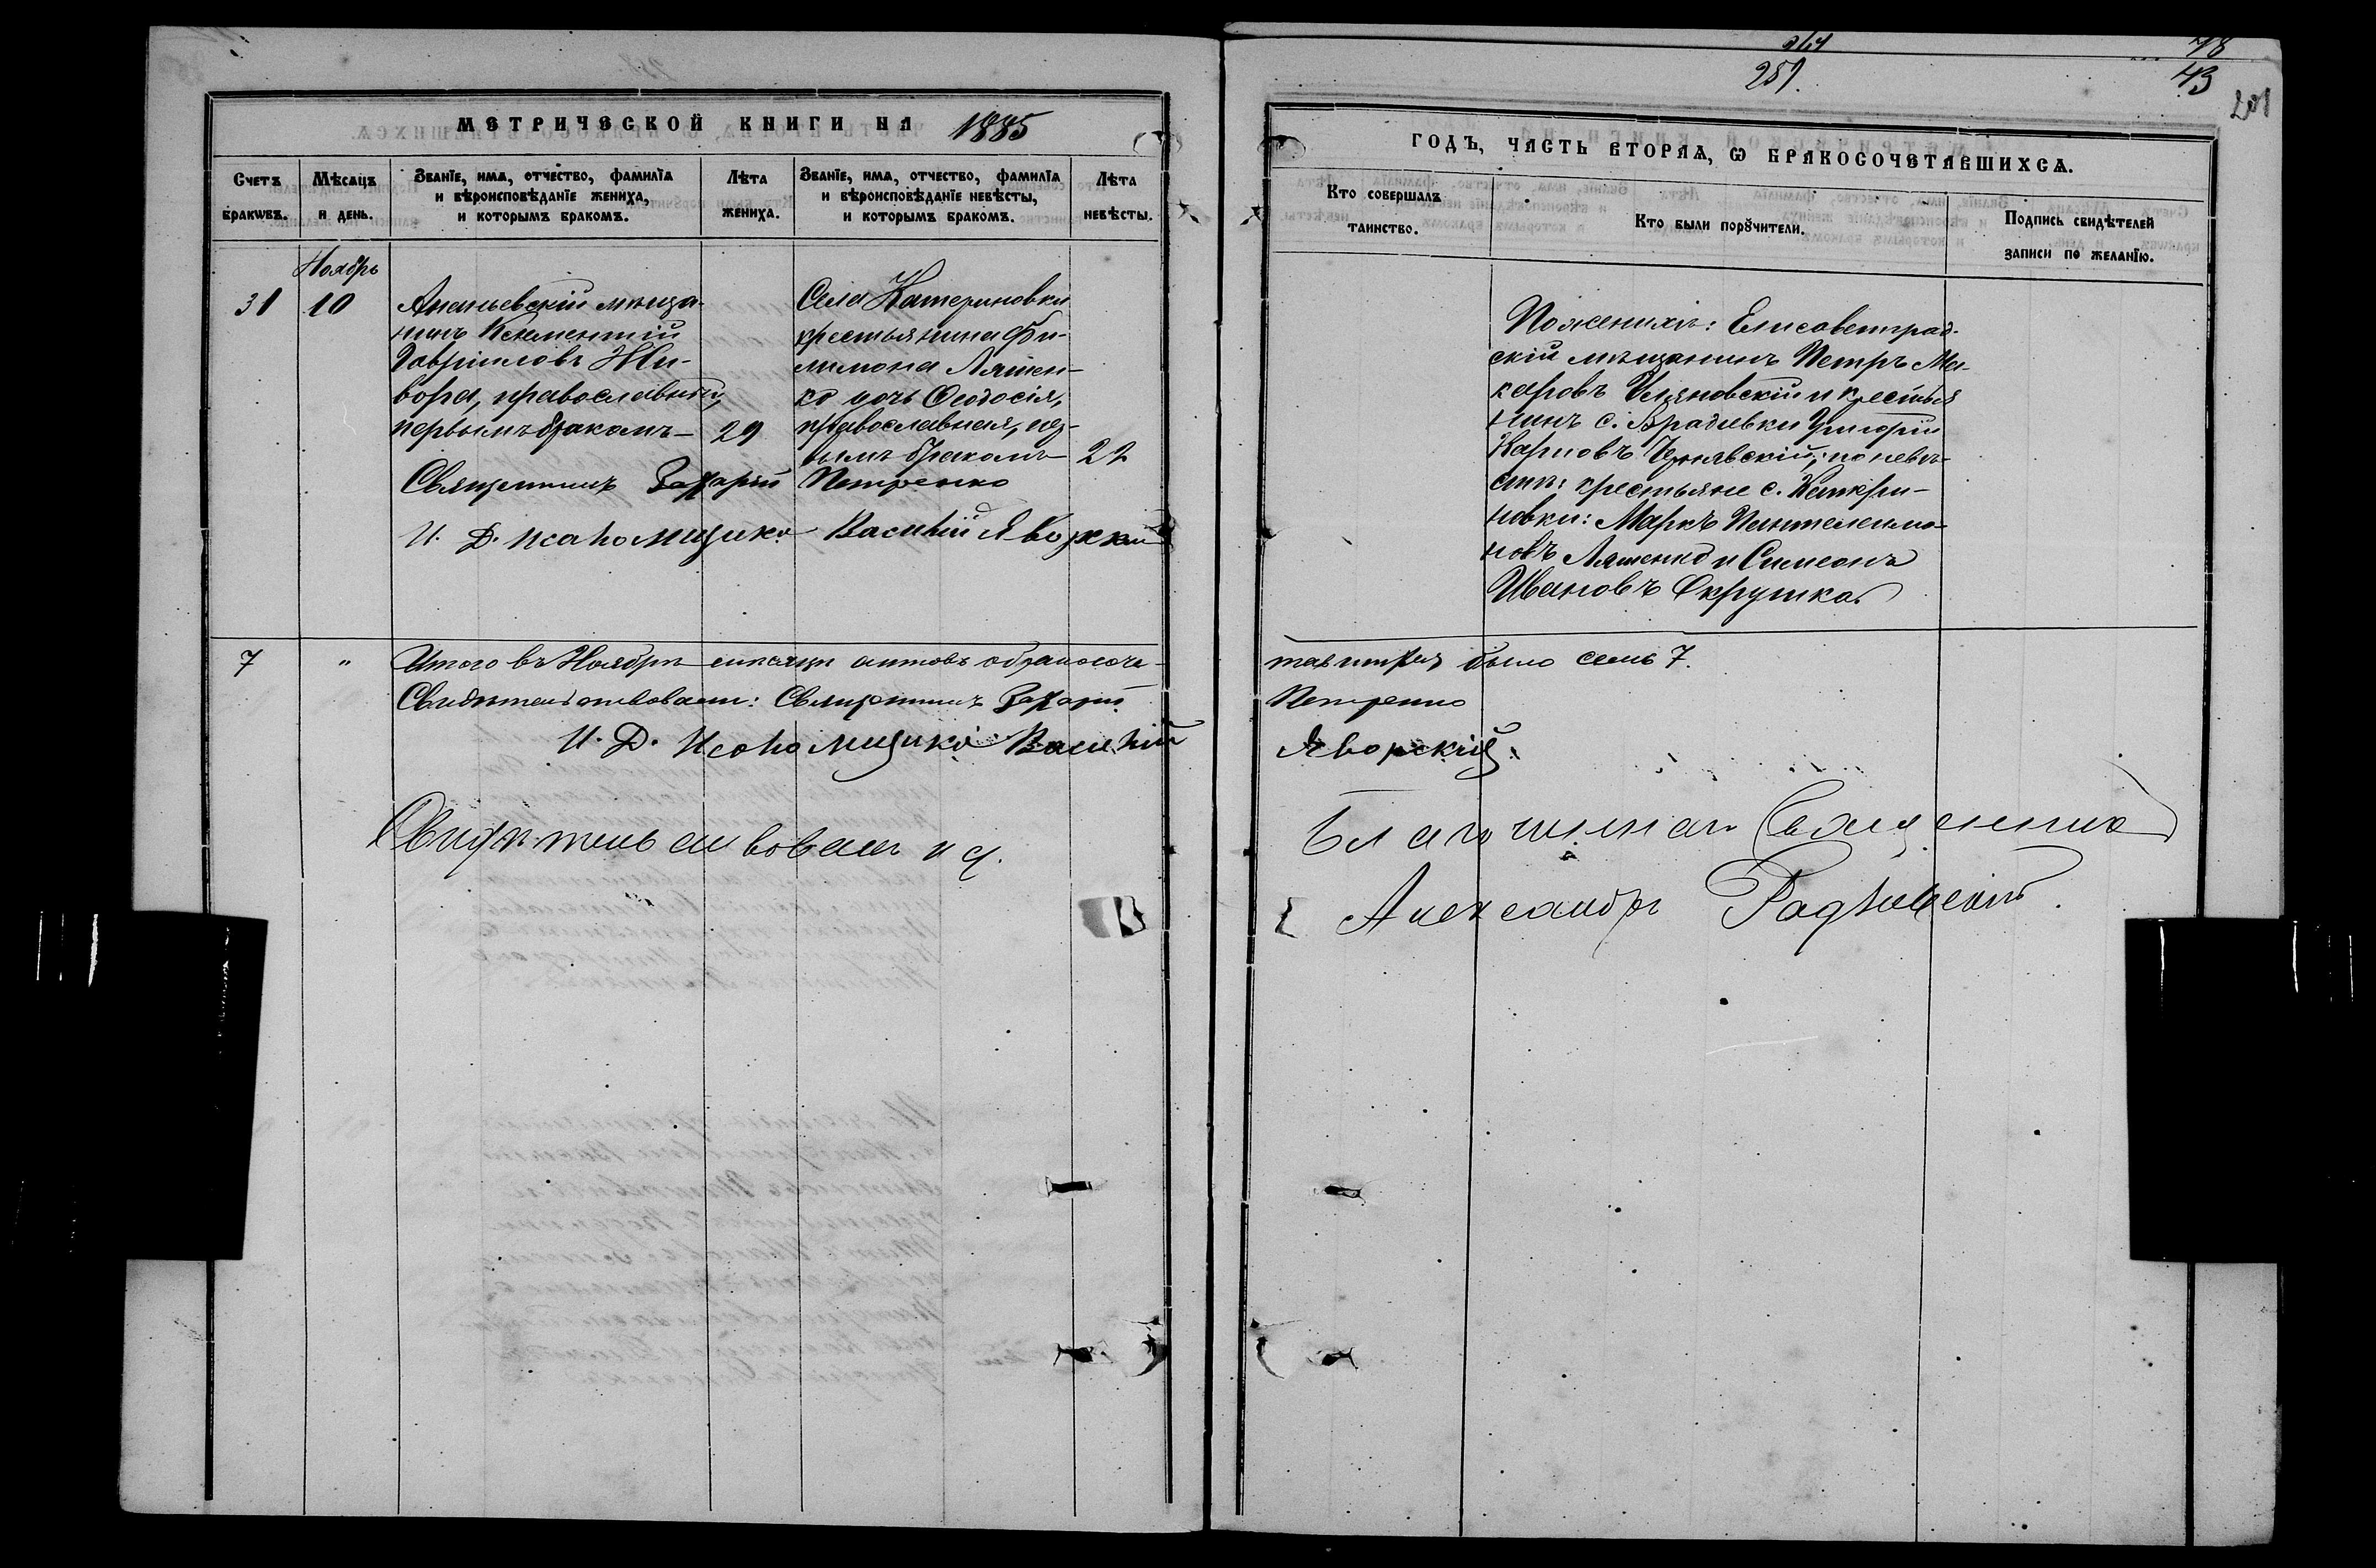 МЕТРИЧЕСКОЙ КНИГИ НА 1885
Счетъ браковъ.
Мѣсяцъ и день.
Званїе, имя, отчество, фамилїя и вѣроисповѣданїе жениха, и которымъ бракомъ.
Лѣта жениха.
Званїе, имя, отчество, фамилїя и вѣроисповѣданїе невѣсты, и которымъ бракомъ.
Лѣта невѣсты.
Ноябрь
31 10
Ананьевскій мѣща-
нинъ Климентій
Гавріиловъ Жи-
вора, православный,
первымъ бракомъ 29
Села Катериновки
крестьянина Фи-
лимона Ляшен-
ко дочь Ѳеодосія,
православная, пер-
вымъ бракомъ 22
Священникъ Захарій Петренко
И. Д. псаломщика Василій Яворскій
7 " Итого въ Ноябрѣ мѣсяцѣ актовъ о бракосоче-
Свидѣтельствовали: Священникъ Захарій
И. Д. Псаломщика Василій
Свидѣтельствовалъ
264
251.
78
43
201
ГОДЪ, ЧАСТЬ ВТОРАЯ, Ѡ БРАКОСОЧЕТАВШИХСЯ.
Кто совершалъ таинство.
Кто были порꙋчители.
Подпись свидѣтелей записи по желанїю.
По женихѣ: Елисаветград-
скій мѣщанинъ Петръ Ма-
каровъ Ульяновскій и крестья
нинъ с. Врадіевки Григорій
Карповъ Чернявскій; по невѣ-
стѣ: крестьяне с. Катери-
новки: Маркъ Пантелеимо-
новъ Ляшенко и Симеонъ
Ивановъ Скрупка.
тавшихся было семь 7.
Петренко
Яворскій.
Благочинный Священникъ
Александръ